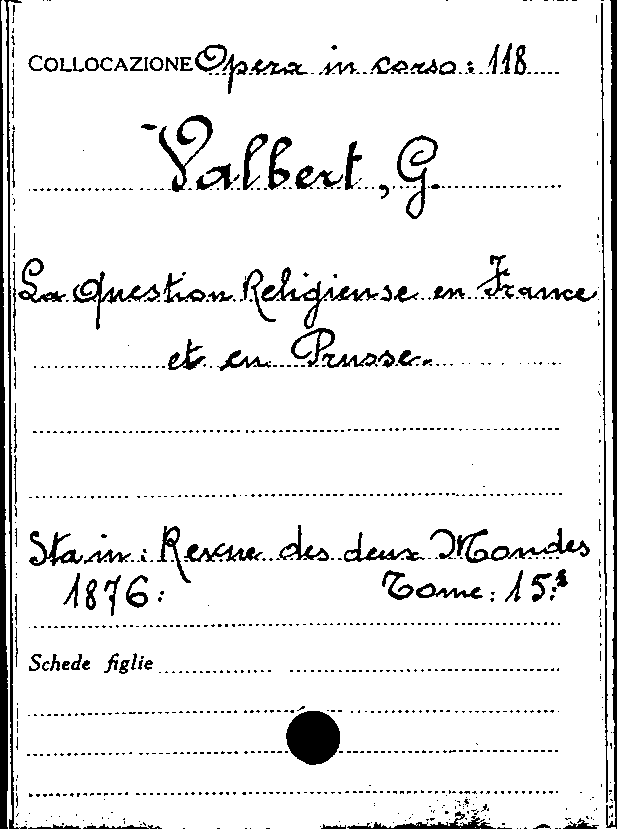 COLLOCAZIONE Opera in corso: 118
Valbert, G.
La Question Religieuse en France
et en Prusse.
Sta in: Revue des deux Mondes
1876: Tome: 15:
Schede figlie